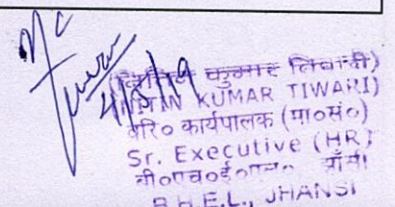 (नितिन कुमार तिवारी)
(NITIN KUMAR TIWARI)
वरि० कार्यपालक (मा०सं०)
Sr. Executive (HR)
बी०एच०ई०एल० झाँसी
B.H.E.L., JHANSI